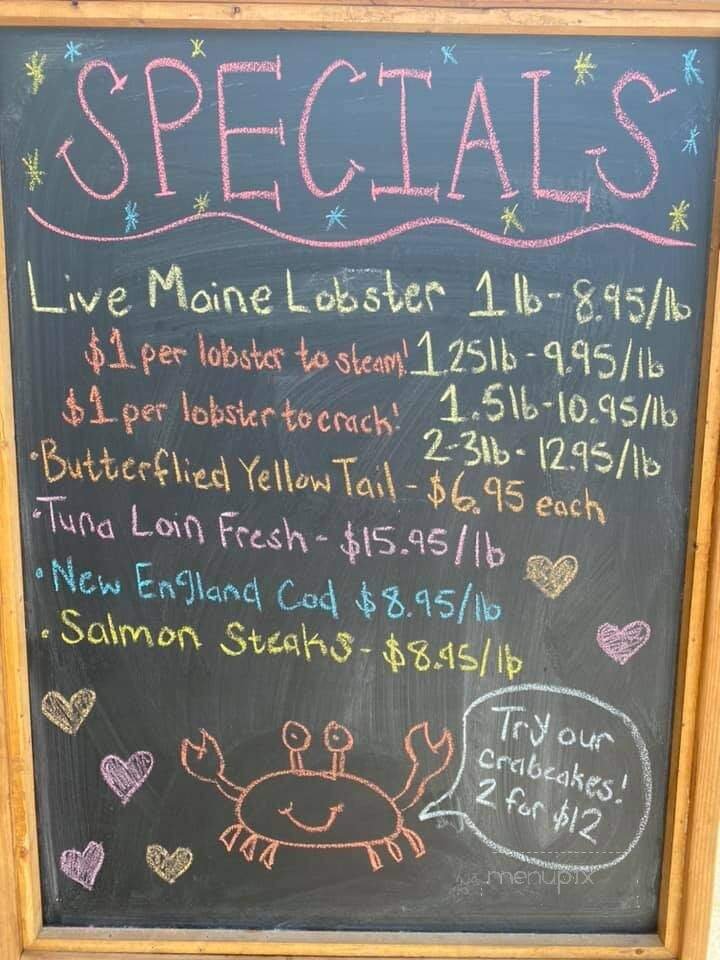 SPECIALS
Live Maine Lobster 1 lb - 8.95/lb
$1 per lobster to steam! 1.25lb - 9.95/lb
$1 per lobster to crack! 1.5lb - 10.95/lb
2-3lb - 12.95/lb
• Butterflied Yellow Tail - $6.95 each
• Tuna Loin Fresh - $15.95/lb
• New England Cod $8.95/lb
• Salmon Steaks - $8.95/lb
Try our
crabcakes!
2 for $12
menupix